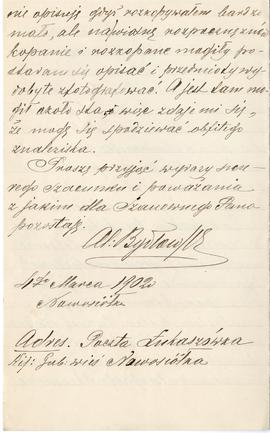 nie opisuję gdyż rozkopywałem bardzo
mało, ale najwięcej rozpocznę znów
kopanie i rozkopane mogiły po-
staram się opisać i przedmioty wy-
dobyte zfotografować. A jest tam mo-
gił około sta, więc zdaje mi się,
że mogę się spodziewać obfitego
znaleziska.
Proszę przyjąć wyrazy
szacunku i poważania
z jakim dla Szanownego Pana
pozostaję
Al:
4go Marca 1902
Nowosiółka
Adres. Poczta Łukaszówka
Kij: Gub: wieś Nowosiółka